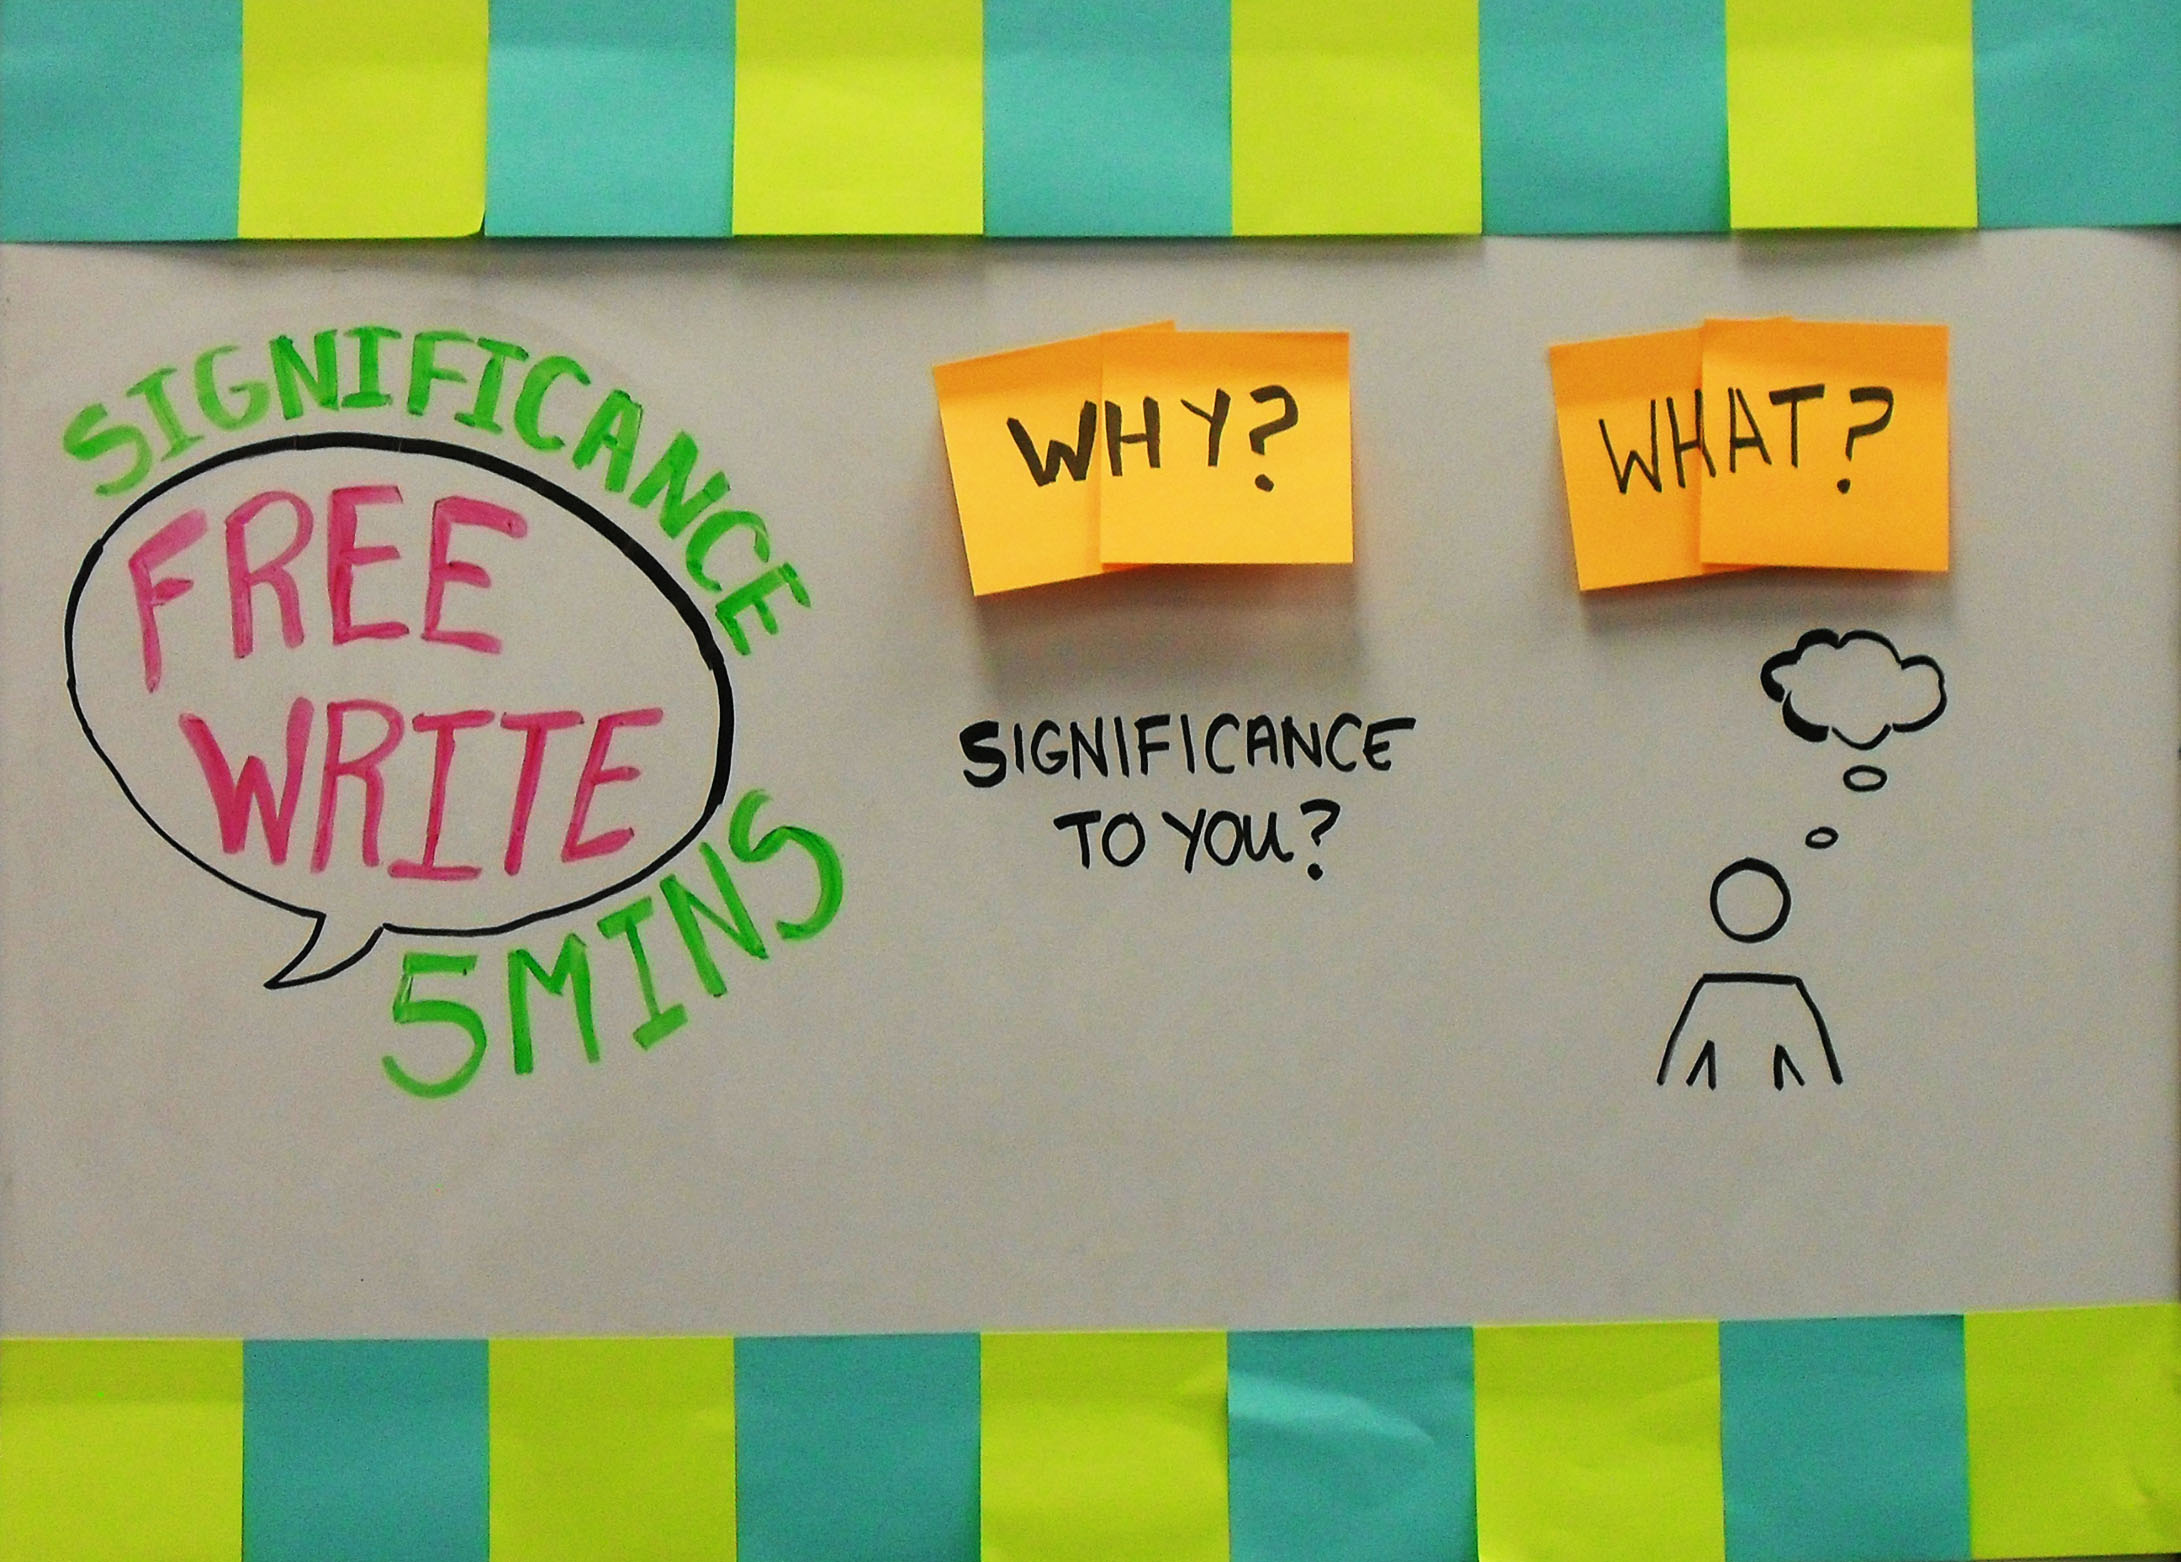 SIGNIFICANCE
FREE
WRITE
5MINS
WHY?
SIGNIFICANCE
TO YOU?
WHAT?